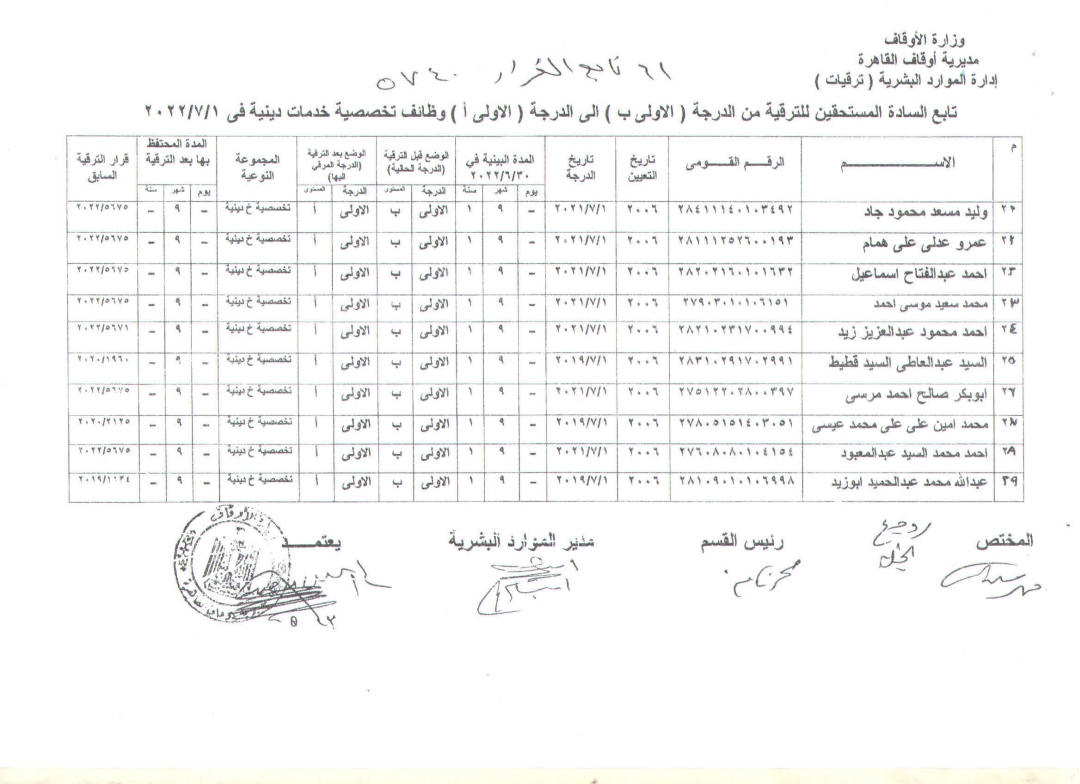 وزارة الأوقاف
مديرية أوقاف القاهرة
إدارة الموارد البشرية ( ترقيات )
٦١ تابع القرار ٥٧٤٠
تابع السادة المستحقين للترقية من الدرجة ( الاولى ب ) الى الدرجة ( الاولى أ ) وظائف تخصصية خدمات دينية فى ٢٠٢٢/٧/١
م الاســـــم الرقـم القـومى تاريخ التعيين تاريخ الدرجة المدة البينية في ٢٠٢٢/٦/٣٠ الوضع قبل الترقية (الدرجة الحالية) الوضع بعد الترقية (الدرجة المرقي اليها) المجموعة النوعية المدة المحتفظ بها بعد الترقية قرار الترقية السابق
يوم شهر سنة الدرجة المستوى الدرجة المستوى يوم شهر سنة
وليد مسعد محمود جاد ٢٨٤١١١٤٠١٠٣٤٩٢ ٢٠٠٦ ٢٠٢١/٧/١ – ٩ ١ الاولى ب الاولى أ تخصصية خ دينية – ٩ – ٢٠٢٢/٥٦٧٥
عمرو عدلى على همام ٢٨١١١٢٥٢٦٠٠١٩٣ ٢٠٠٦ ٢٠٢١/٧/١ – ٩ ١ الاولى ب الاولى أ تخصصية خ دينية – ٩ – ٢٠٢٢/٥٦٧٥
احمد عبدالفتاح اسماعيل ٢٨٢٠٢١٦٠١٠١٦٣٢ ٢٠٠٦ ٢٠٢١/٧/١ – ٩ ١ الاولى ب الاولى أ تخصصية خ دينية – ٩ – ٢٠٢٢/٥٦٧٥
٢٣ محمد سعيد موسى احمد ٢٧٩٠٣٠١٠١٠٦١٥١ ٢٠٠٦ ٢٠٢١/٧/١ – ٩ ١ الاولى ب الاولى أ تخصصية خ دينية – ٩ – ٢٠٢٢/٥٦٧٥
٢٤ احمد محمود عبدالعزيز زيد ٢٨٢١٠٢٣١٧٠٠٩٩٤ ٢٠٠٦ ٢٠٢١/٧/١ – ٩ ١ الاولى ب الاولى أ تخصصية خ دينية – ٩ – ٢٠٢٢/٥٦٧١
٢٥ السيد عبدالعاطى السيد قطيط ٢٨٣١٠٢٩١٧٠٢٩٩١ ٢٠٠٦ ٢٠١٩/٧/١ – ٩ ١ الاولى ب الاولى أ تخصصية خ دينية – ٩ – ٢٠٢٠/١٩٦٠
٢٦ ابوبكر صالح احمد مرسى ٢٧٥١٢٢٠٢٨٠٠٣٩٧ ٢٠٠٦ ٢٠٢١/٧/١ – ٩ ١ الاولى ب الاولى أ تخصصية خ دينية – ٩ – ٢٠٢٢/٥٦٧٥
محمد امين على على محمد عيسى ٢٧٨٠٥١٥١٤٠٣٠٥١ ٢٠٠٦ ٢٠١٩/٧/١ – ٩ ١ الاولى ب الاولى أ تخصصية خ دينية – ٩ – ٢٠٢٠/٢١٢٥
احمد محمد السيد عبدالمعبود ٢٧٦٠٨٠٨٠١٠٤١٥٤ ٢٠٠٦ ٢٠٢١/٧/١ – ٩ ١ الاولى ب الاولى أ تخصصية خ دينية – ٩ – ٢٠٢٢/٥٦٧٥
٢٩ عبدالله محمد عبدالحميد ابوزيد ٢٨١٠٩٠١٠١٠٦٩٩٨ ٢٠٠٦ ٢٠١٩/٧/١ – ٩ ١ الاولى ب الاولى أ تخصصية خ دينية – ٩ – ٢٠١٩/١١٣٤
المختص رئيس القسم مدير الموارد البشرية يعتمـــد